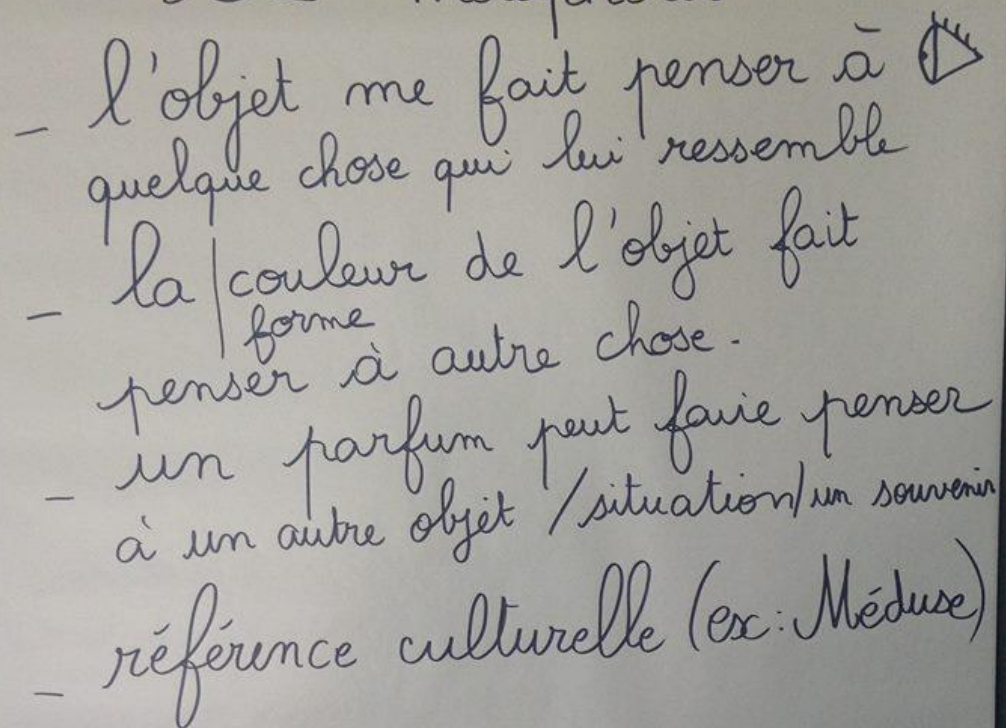 - l'objet me fait penser à
quelque chose qui lui ressemble
- la couleur de l'objet fait
forme
penser à autre chose.
- un parfum peut faire penser
à un autre objet / situation / un souvenir
- référence culturelle (ex: Méduse)